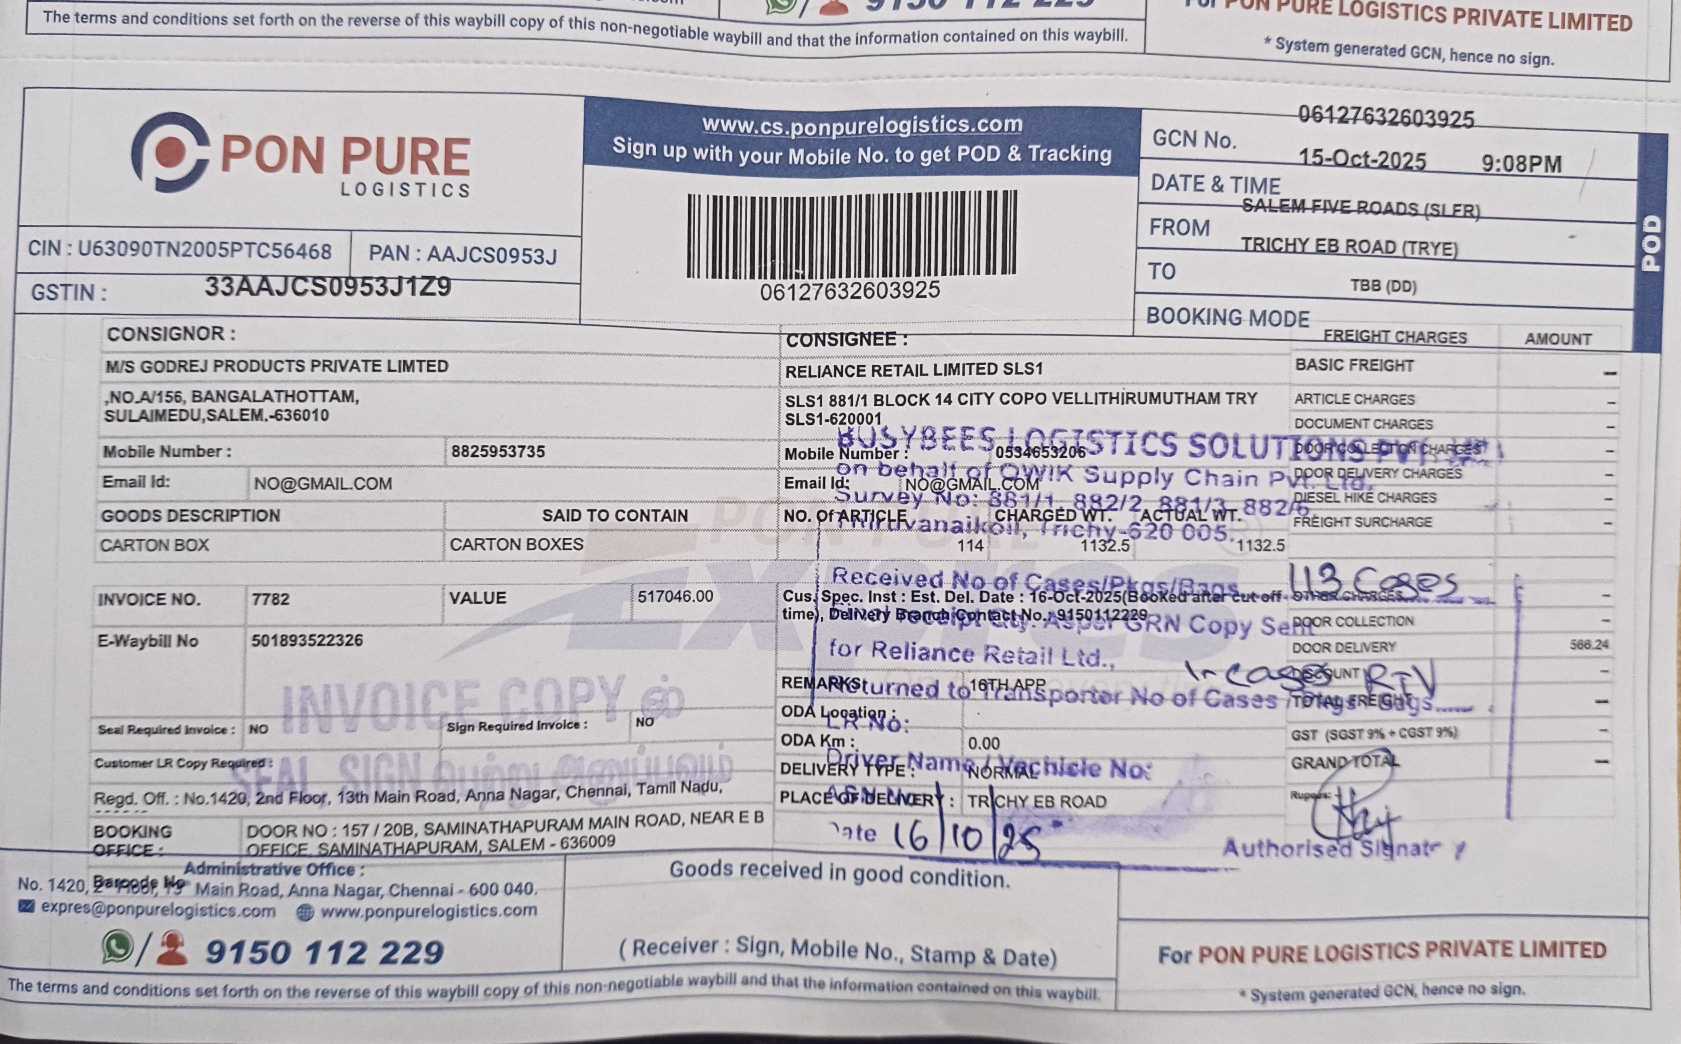 The terms and conditions set forth on the reverse of this waybill copy of this non-negotiable waybill and that the information contained on this waybill.
9150 112 229
For PON PURE LOGISTICS PRIVATE LIMITED
* System generated GCN, hence no sign.
PON PURE
LOGISTICS
CIN : U63090TN2005PTC56468
PAN : AAJCS0953J
GSTIN : 33AAJCS0953J1Z9
www.cs.ponpurelogistics.com
Sign up with your Mobile No. to get POD & Tracking
06127632603925
GCN No. 06127632603925
DATE & TIME 15-Oct-2025 9:08PM
FROM SALEM FIVE ROADS (SLFR)
TO TRICHY EB ROAD (TRYE)
BOOKING MODE TBB (DD)
POD
CONSIGNOR :
M/S GODREJ PRODUCTS PRIVATE LIMTED
,NO.A/156, BANGALATHOTTAM,
SULAIMEDU,SALEM.-636010
Mobile Number : 8825953735
Email Id: NO@GMAIL.COM
GOODS DESCRIPTION SAID TO CONTAIN
CARTON BOX CARTON BOXES
INVOICE NO. 7782 VALUE 517046.00
E-Waybill No 501893522326
INVOICE COPY ல்
SEAL SIGN பெற்று அனுப்பவும்
Seal Required Invoice : NO Sign Required Invoice : NO
Customer LR Copy Required :
Regd. Off. : No.1420, 2nd Floor, 13th Main Road, Anna Nagar, Chennai, Tamil Nadu,
BOOKING OFFICE : DOOR NO : 157 / 20B, SAMINATHAPURAM MAIN ROAD, NEAR E B
OFFICE, SAMINATHAPURAM, SALEM - 636009
CONSIGNEE :
RELIANCE RETAIL LIMITED SLS1
SLS1 881/1 BLOCK 14 CITY COPO VELLITHIRUMUTHAM TRY
SLS1-620001
Mobile Number : 0534653206
Email Id: NO@GMAIL.COM
NO. Of ARTICLE CHARGED WT. ACTUAL WT.
114 1132.5 1132.5
Cus. Spec. Inst : Est. Del. Date : 16-Oct-2025(Booked after cut off
time), Delivery Branch Contact No.: 9150112229
REMARKS: 16TH APP
ODA Location :
ODA Km : 0.00
DELIVERY TYPE : NORMAL
PLACE OF DELIVERY : TRICHY EB ROAD
PON PURE
Expres
BUSYBEES LOGISTICS SOLUTIONS PVT
on behalf of QWIK Supply Chain Pvt. Ltd.
Survey No: 881/1, 882/2, 881/3, 882/6,
Thiruvanaikoil, Trichy-620 005.
Received No of Cases/Pkgs/Bags 113 Cases
Asper GRN Copy Sent
for Reliance Retail Ltd.,
Returned to Transporter No of Cases
LR No:
Driver Name / Vechicle No:
Date 16/10/25
Authorised Signat
FREIGHT CHARGES AMOUNT
BASIC FREIGHT –
ARTICLE CHARGES –
DOCUMENT CHARGES –
DOOR COLLECTION CHARGES –
DOOR DELIVERY CHARGES –
DIESEL HIKE CHARGES –
FREIGHT SURCHARGE –
OTHER CHARGES –
DOOR COLLECTION –
DOOR DELIVERY 566.24
DISCOUNT –
TOTAL FREIGHT –
GST (SGST 9% + CGST 9%) –
GRAND TOTAL –
Rupees:
Administrative Office :
No. 1420, 2nd Floor, 13th Main Road, Anna Nagar, Chennai - 600 040.
Barcode No
expres@ponpurelogistics.com www.ponpurelogistics.com
9150 112 229
Goods received in good condition.
( Receiver : Sign, Mobile No., Stamp & Date)
For PON PURE LOGISTICS PRIVATE LIMITED
* System generated GCN, hence no sign.
The terms and conditions set forth on the reverse of this waybill copy of this non-negotiable waybill and that the information contained on this waybill.